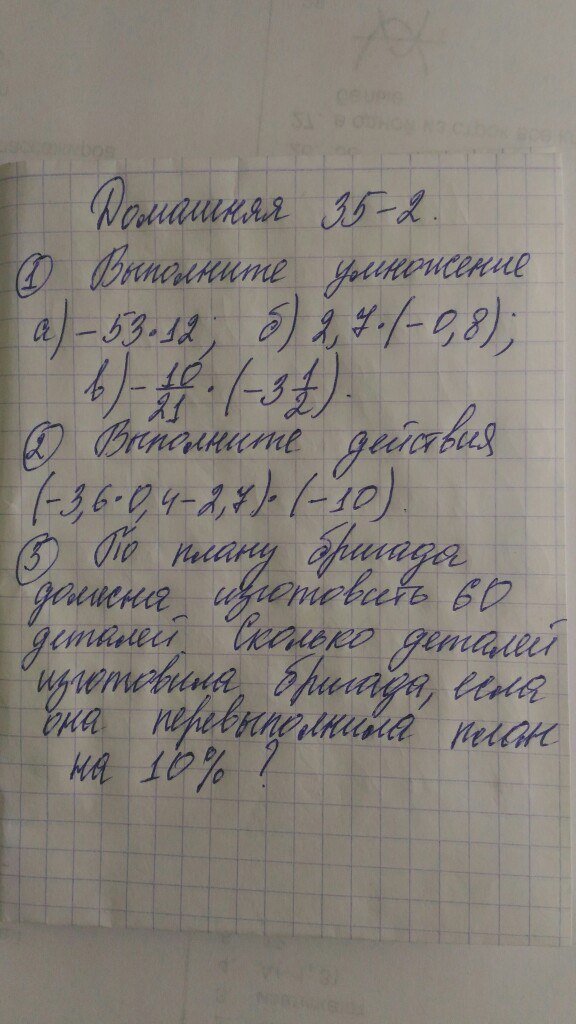 белые
27 в одной из строк все к
пассажиров
Домашняя 35-2.
① Выполните умножение
а) -53·12; б) 2,7·(-0,8);
в) -10/21·(-3 1/2).
② Выполните действия
(-3,6·0,4-2,7)·(-10)
③ По плану бригада
должна изготовить 60
деталей Сколько деталей
изготовила бригада, если
она перевыполнила план
на 10% ?